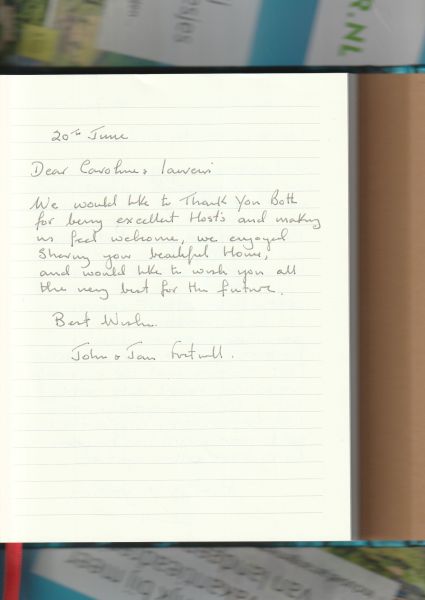 R.NL
20th June
Dear Caroline &
We would like to Thank You Both
for being excellent Hosts and making
us feel welcome, we enjoyed
Sharing your beautiful Home,
and would like to wish you all
the very best for the future.
Best Wishes
John & Jan